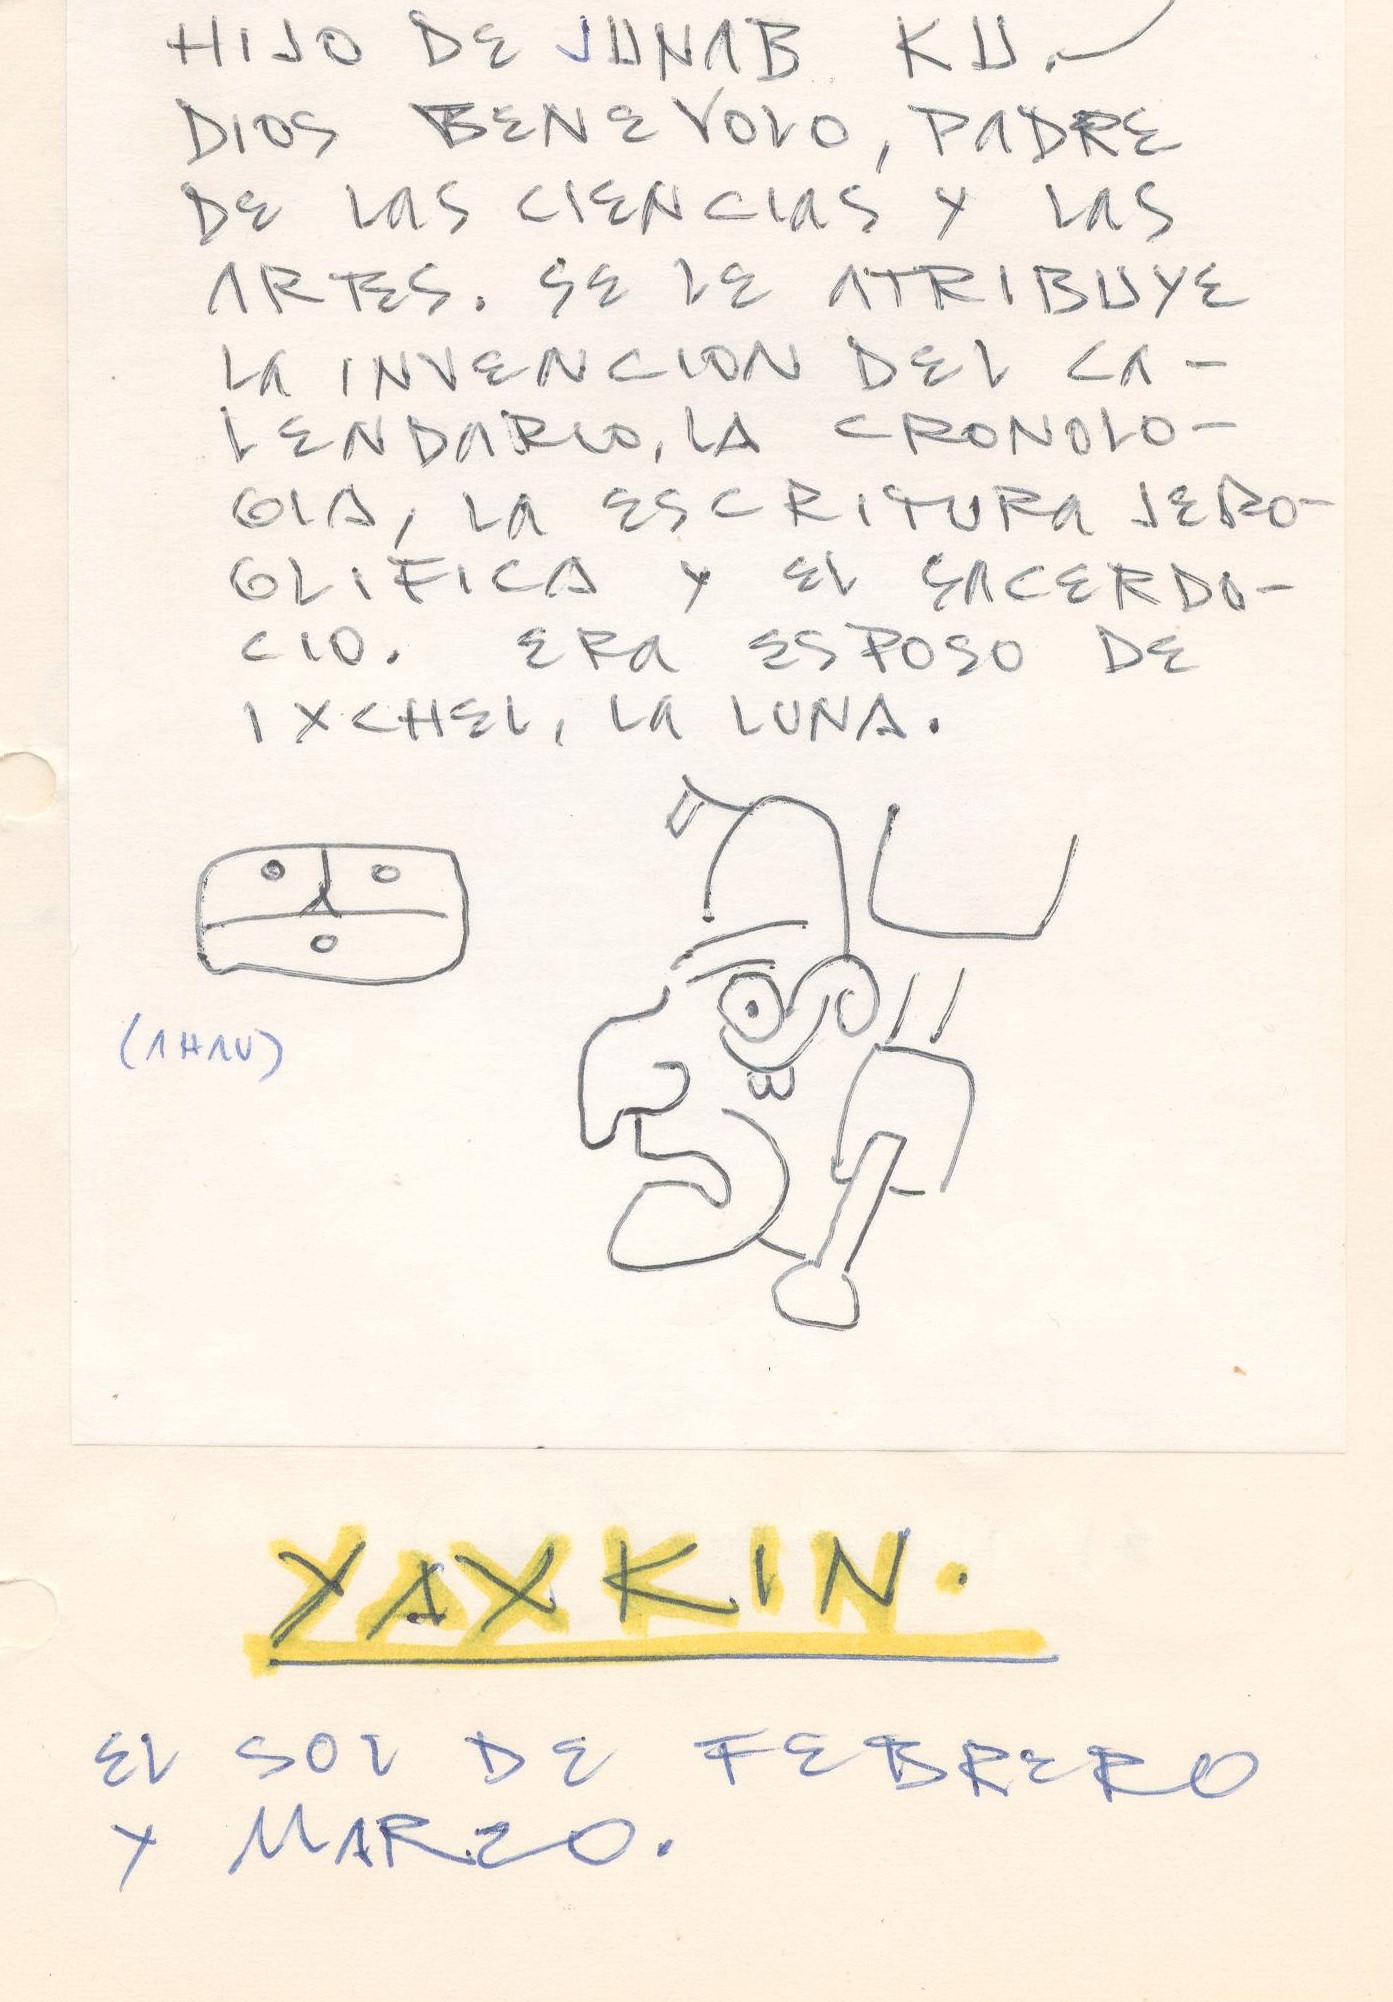 HIJO DE JUNAB KU.
DIOS BENEVOLO, PADRE
DE LAS CIENCIAS Y LAS
ARTES. SE LE ATRIBUYE
LA INVENCION DEL CA-
LENDARIO, LA CRONOLO-
GIA, LA ESCRITURA JERO-
GLIFICA Y EL SACERDO-
CIO. ERA ESPOSO DE
IXCHEL, LA LUNA.
(AHAU)
YAXKIN.
EL SOL DE FEBRERO
Y MARZO.